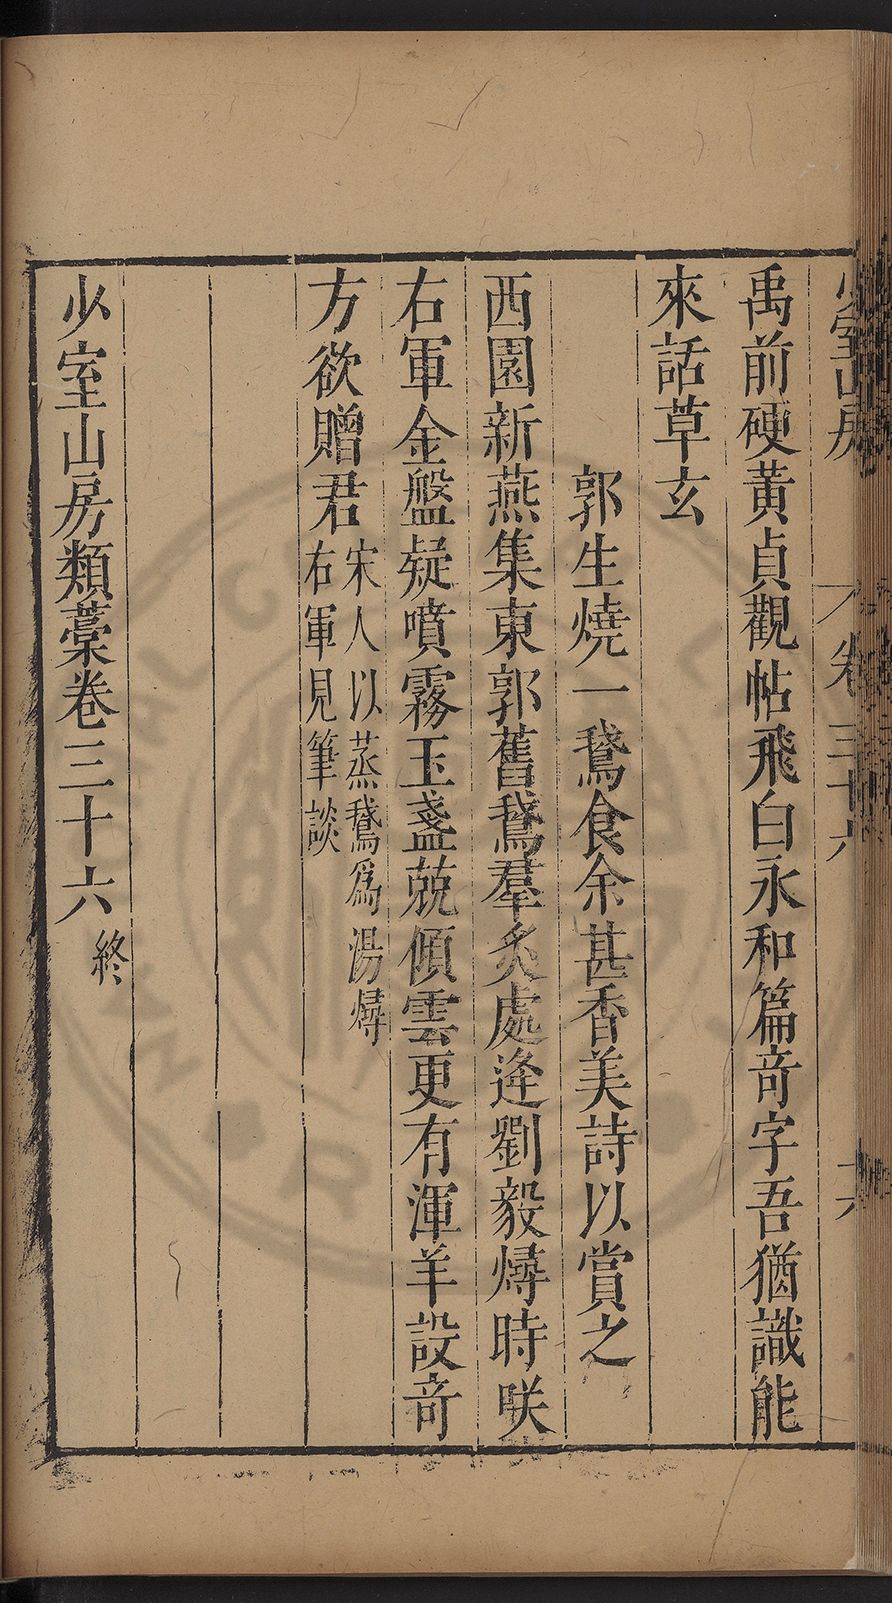 少室山房 卷三十六 六
禹前硬黃貞觀帖飛白永和篇竒字吾猶識能
來話草玄
郭生燒一鵞食余甚香美詩以賞之
西園新燕集東郭舊鵞羣炙處逢劉毅燖時咲
右軍金盤疑噴霧玉盞兢傾雲更有渾羊設竒
方欲贈君宋人以蒸鵞爲湯燖
右軍見筆談
少室山房類藁卷三十六終